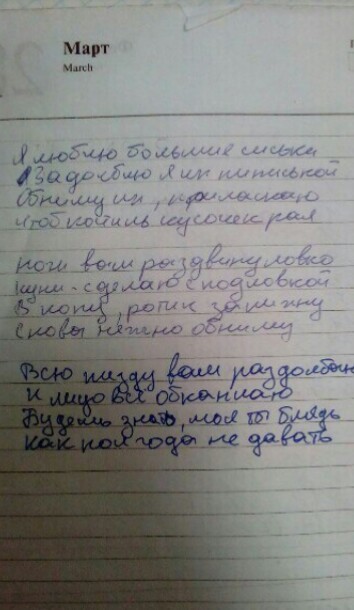 Март
March
Я люблю большие сиськи
Задолблю я их пиписькой
Обниму их, приласкаю
чтоб кончить кусочек рая
Ноги вам раздвину ловко
куни-сделаю с подловкой
В попу, ротик запихну
Снова нежно обниму
Всю пизду вам раздолбаю
И лицо всё обкончаю
Будешь знать, моя ты блядь
Как пол года не давать